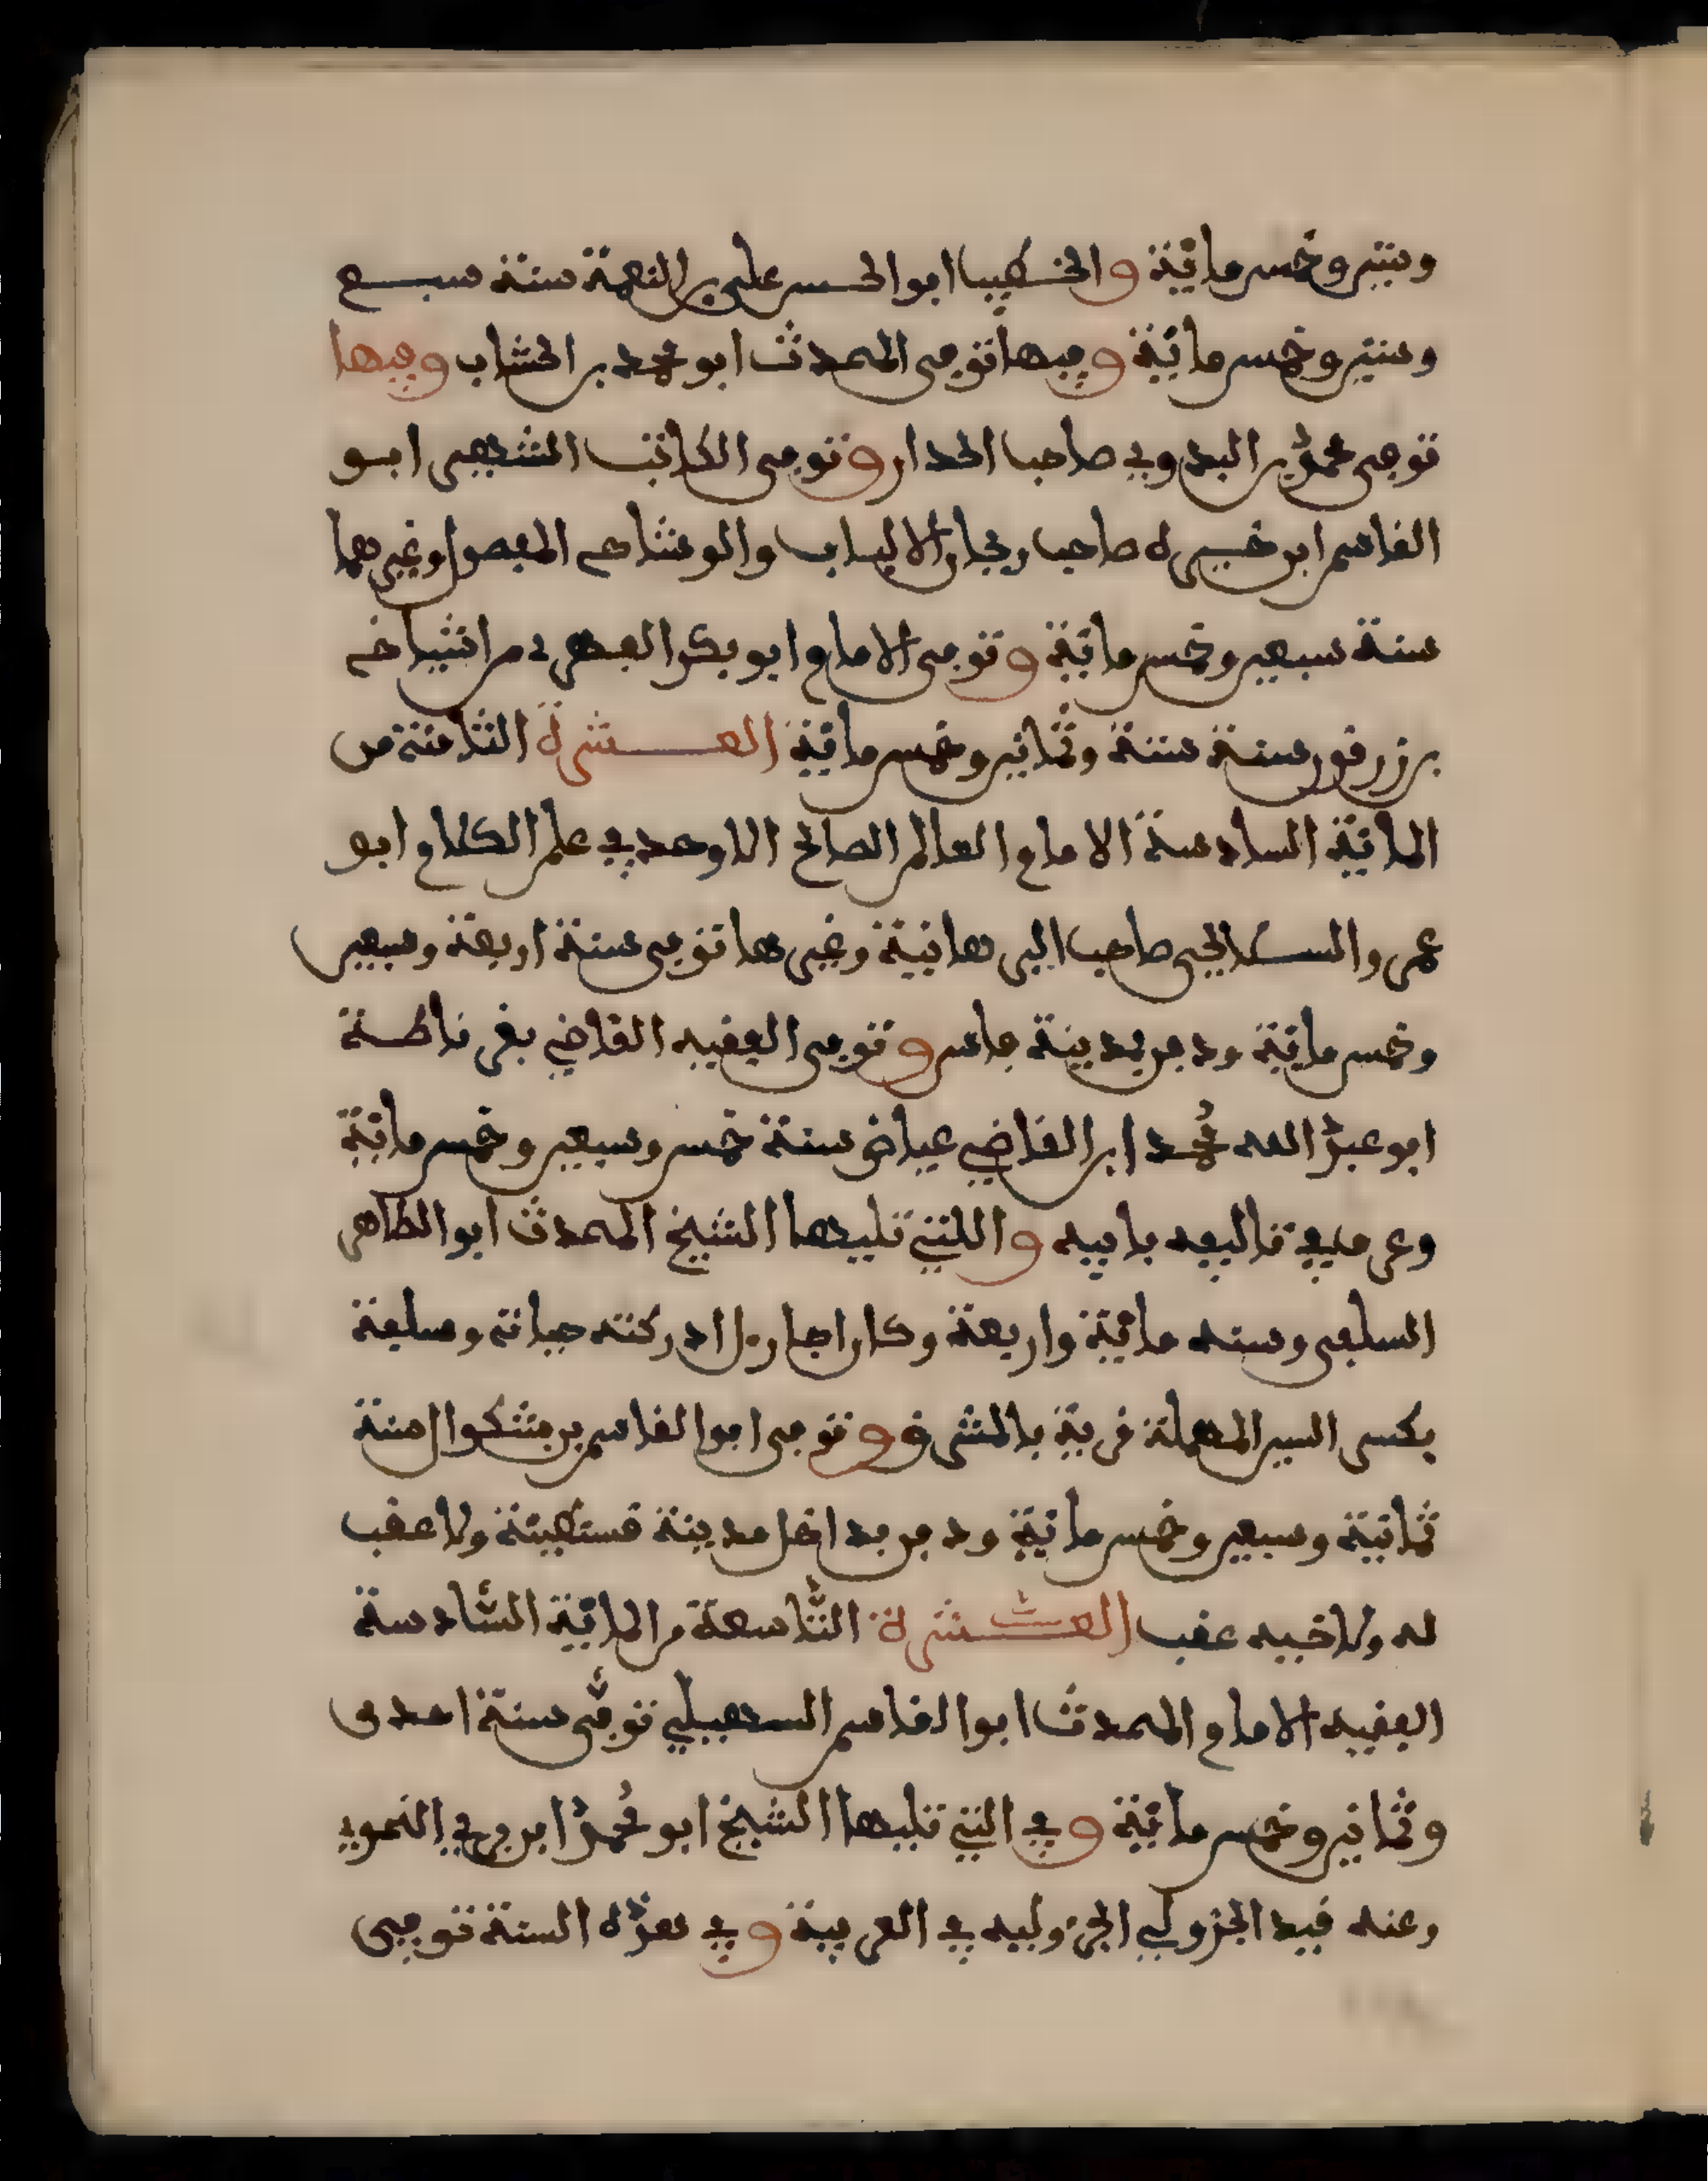 وستين وخمس مائة والخطيب ابو الحسن علي بن النعمة سنة سبع
وستين وخمس مائة وفيها توفى المحدث ابو محمد بن الخشاب وفيها
توفى محمد بن البدوي صاحب الجدار وتوفى الكاتب الشهير ابو
القاسم ابن خيرة صاحب ريحان الالباب والوشاح المفصل وغيرهما
سنة سبعين وخمس مائة وتوفى الامام ابو بكر الفهري من اشياخ
بن زرقون سنة ستة وثمانين وخمس مائة العشرة الثامنة من
المائة السادسة الامام العالم الصالح الاوحد في علم الكلام ابو
عمرو السلالجي صاحب البرهانية وغيرها توفى سنة اربعة وسبعين
وخمس مائة ودفن بمدينة فاس وتوفى الفقيه القاضي بغرناطة
ابو عبد الله محمد ابن القاضي عياض سنة خمس وسبعين وخمس مائة
وعرف في تاليفه بابيه والتي تليها الشيخ المحدث ابو الطاهر
السلفي وسنه مائة واربعة وكان اجاز من ادركته حياته وسلفة
بكسر السين المهملة قرية بالمشرق وتوفى ابو القاسم بن بشكوال سنة
ثمانية وسبعين وخمس مائة ودفن بداخل مدينة قسنطينة ولا عقب
له ولاخيه عقب العشرة التاسعة من المائة السادسة
الفقيه الامام المحدث ابو القاسم السهيلي توفى سنة احدى
وثمانين وخمس مائة وفي التي تليها الشيخ ابو محمد ابن بري النحوي
وعنه قيد الجزولي الجزولية في العربية وفي هذه السنة توفى